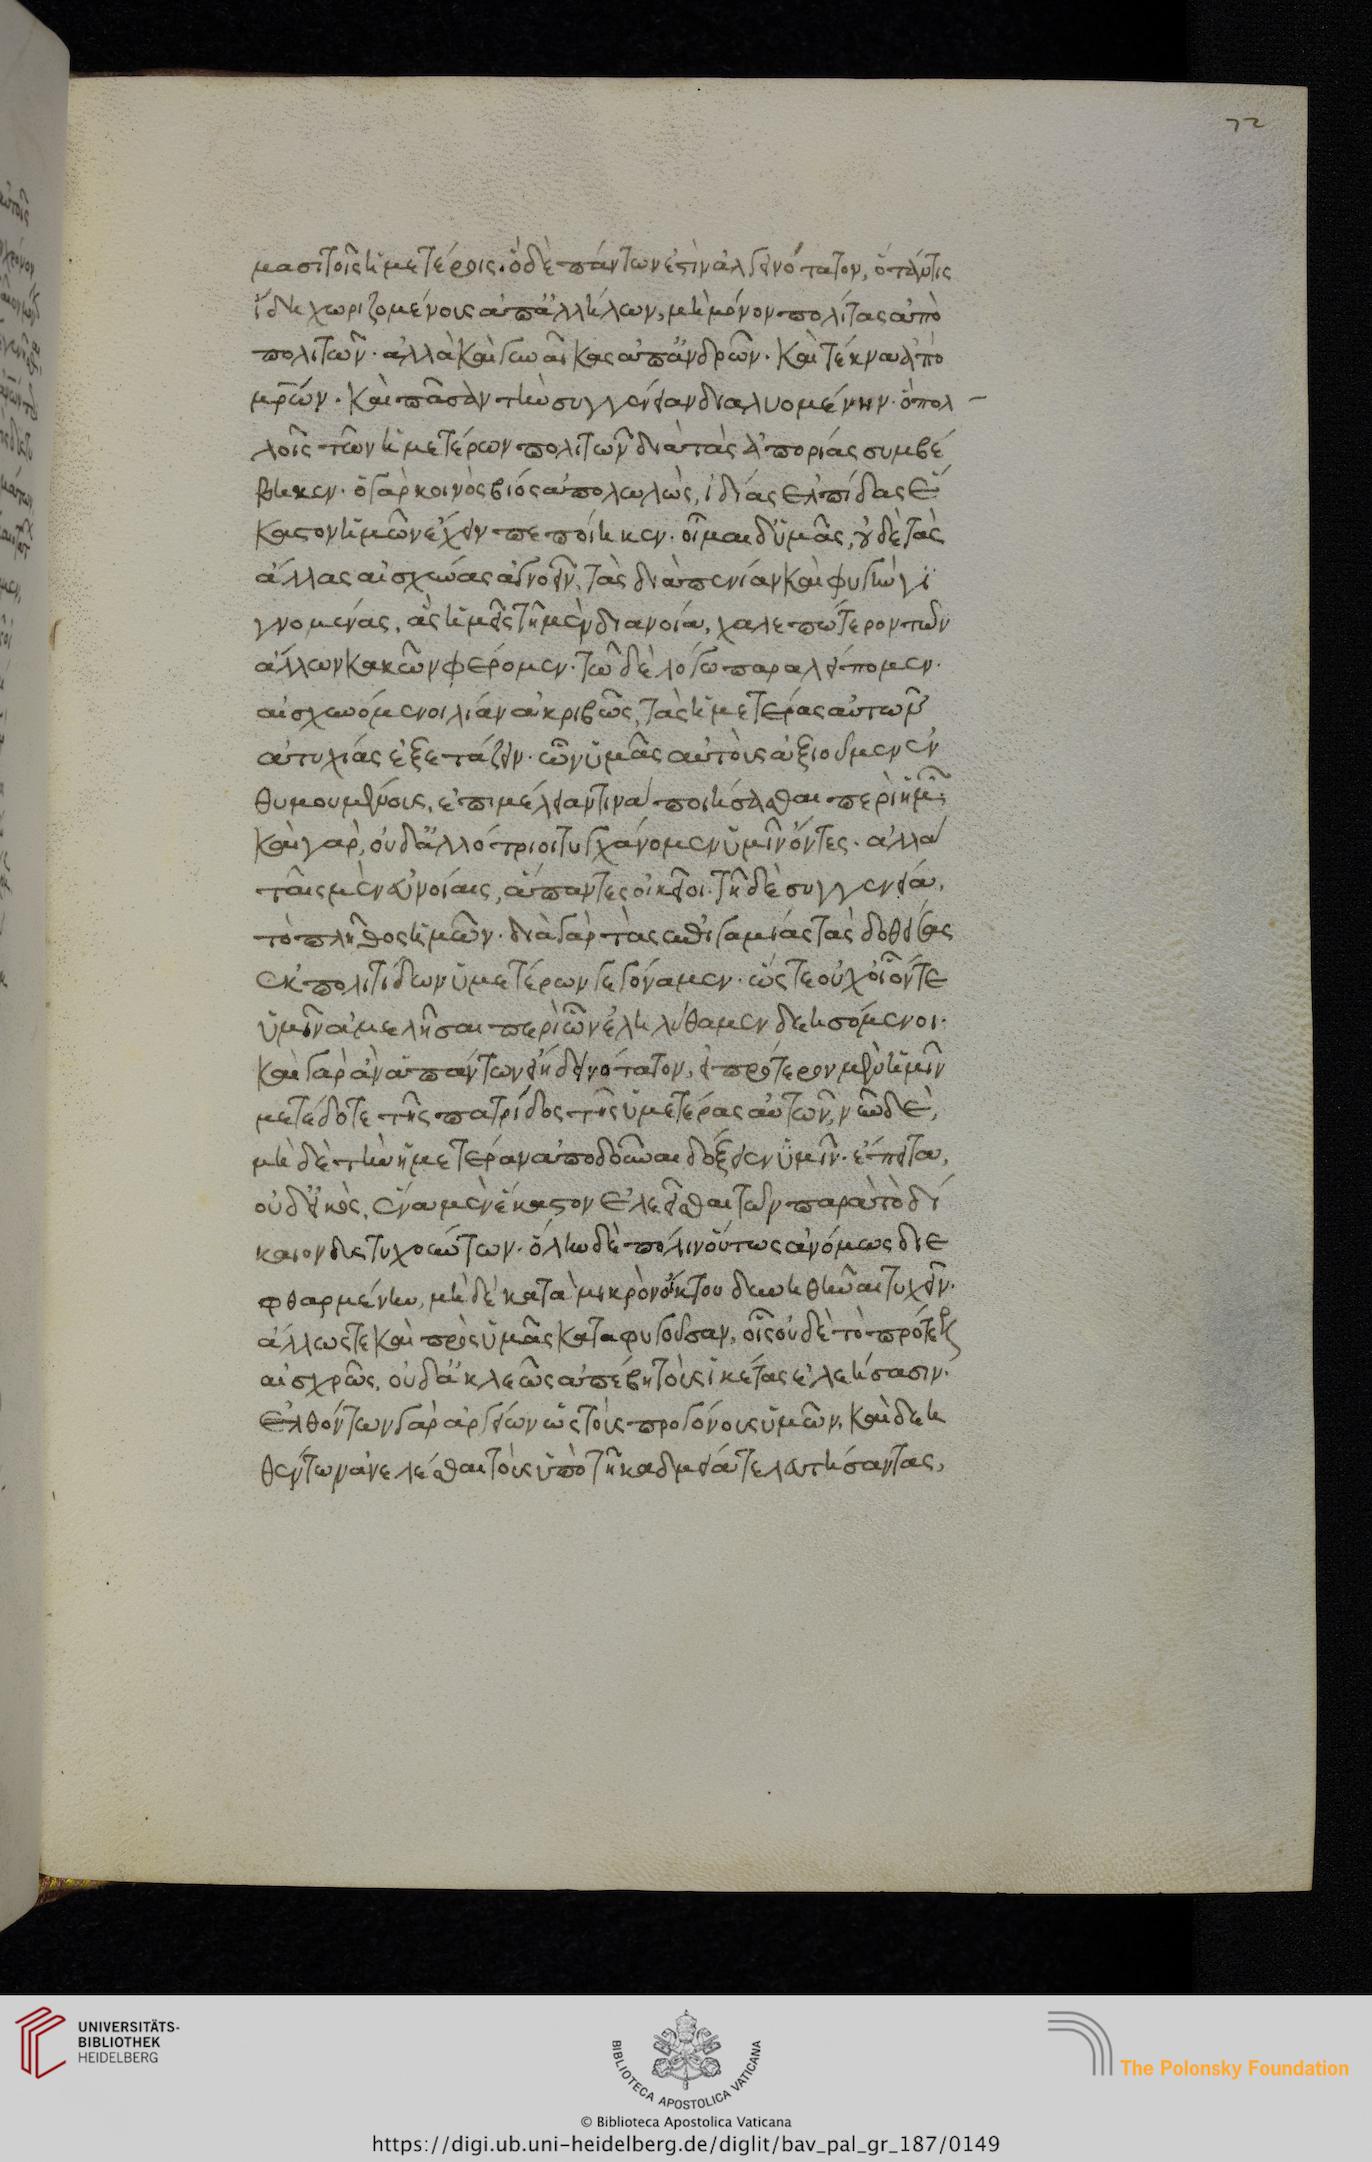 72
μασι τοῖς ἡμετέροις. ὃ δὲ πάντων ἐστὶν ἀλγεινότατον, ὅταν τις
ἴδῃ χωριζομένους ἀπ' ἀλλήλων, μὴ μόνον πολίτας ἀπὸ
πολιτῶν· ἀλλὰ καὶ γυναῖκας ἀπ' ἀνδρῶν· καὶ τέκνα ἀπὸ
μρ̅ῶν· καὶ πᾶσαν τὴν συγγένειαν διαλυομένην· ὃ πολ
λοῖς τῶν ἡμετέρων πολιτῶν διὰ τὰς ἀπορίας συμβέ
βηκεν· ὁ γὰρ κοινὸς βίος ἀπολωλὼς, ἰδίας ἐλπίδας ἕ
καστον ἡμῶν ἔχειν πεποίηκεν· οἶμαι δ' ὑμᾶς, οὐδὲ τὰς
ἄλλας αἰσχύνας ἀγνοεῖν, τὰς διὰ πενίαν καὶ φυγὴν γι
γνομένας, ἃς ἡμεῖς τῇ μὲν διανοίᾳ, χαλεπώτερον τῶν
ἄλλων κακῶν φέρομεν· τῷ δὲ λόγῳ παραλείπομεν·
αἰσχυνόμενοι λίαν ἀκριβῶς, τὰς ἡμετέρας αὐτῶν
ἀτυχίας ἐξετάζειν· ὧν ὑμᾶς αὐτοὺς ἀξιοῦμεν ἐν
θυμουμένους, ἐπιμέλειάν τινα ποιήσασθαι περὶ ἡμῶν·
καὶ γὰρ, οὐδ' ἀλλότριοι τυγχάνομεν ὑμῖν ὄντες· ἀλλὰ
ταῖς μὲν εὐνοίαις, ἅπαντες οἰκεῖοι· τῇ δὲ συγγενείᾳ,
τὸ πλῆθος ἡμῶν· διὰ γὰρ τὰς ἐπιγαμίας τὰς δοθείσας
ἐκ πολιτίδων ὑμετέρων γεγόναμεν· ὥστε οὐχ οἷόν τε
ὑμῖν ἀμελῆσαι περὶ ὧν ἐληλύθαμεν δεησόμενοι·
καὶ γὰρ ἂν ἁπάντων εἴη δεινότατον, εἰ πρότερον μὲν ἡμῖν
μετέδοτε τῆς πατρίδος τῆς ὑμετέρας αὐτῶν, νῦν δὲ,
μηδὲ τὴν ἡμετέραν ἀποδοῦναι δόξειεν ὑμῖν· ἔπειτα,
οὐδ' εἰκὸς, ἕνα μὲν ἕκαστον ἐλεεῖσθαι τῶν παρὰ τὸ δί
καιον δυστυχούντων· ὅλην δὲ πόλιν οὕτως ἀνόμως διε
φθαρμένην, μηδὲ κατὰ μικρὸν οἴκτου δυνηθῆναι τυχεῖν·
ἄλλως τε καὶ πρὸς ὑμᾶς καταφυγοῦσαν, οἷς οὐδὲ τὸ πρότερον
αἰσχρῶς, οὐδ' ἀκλεῶς ἀπέβη τοὺς ἱκέτας ἐλεήσασιν·
ἐλθόντων γὰρ ἀργείων ὡς τοὺς προγόνους ὑμῶν, καὶ δεη
θέντων ἀνελέσθαι τοὺς ὑπὸ τῇ καδμείᾳ τελευτήσαντας,
UNIVERSITÄTS-
BIBLIOTHEK
HEIDELBERG
BIBLIOTECA APOSTOLICA VATICANA
The Polonsky Foundation
© Biblioteca Apostolica Vaticana
https://digi.ub.uni-heidelberg.de/diglit/bav_pal_gr_187/0149